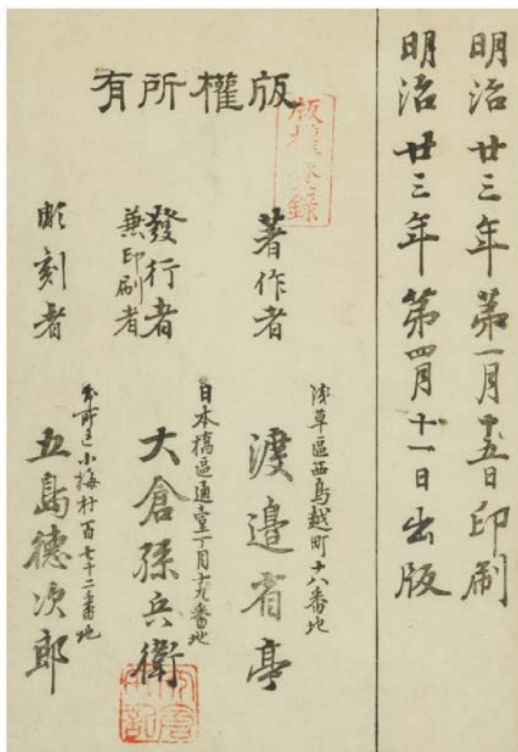 明治廿三年第一月十五日印刷
明治廿三年第四月十一日出版
版權所有
版權登録
著作者
淺草區西鳥越町十八番地
渡邉省亭
發行者
兼印刷者
日本橋區通壹丁目十九番地
大倉孫兵衛
彫刻者
本所區小梅村百七十二番地
五島德次郎